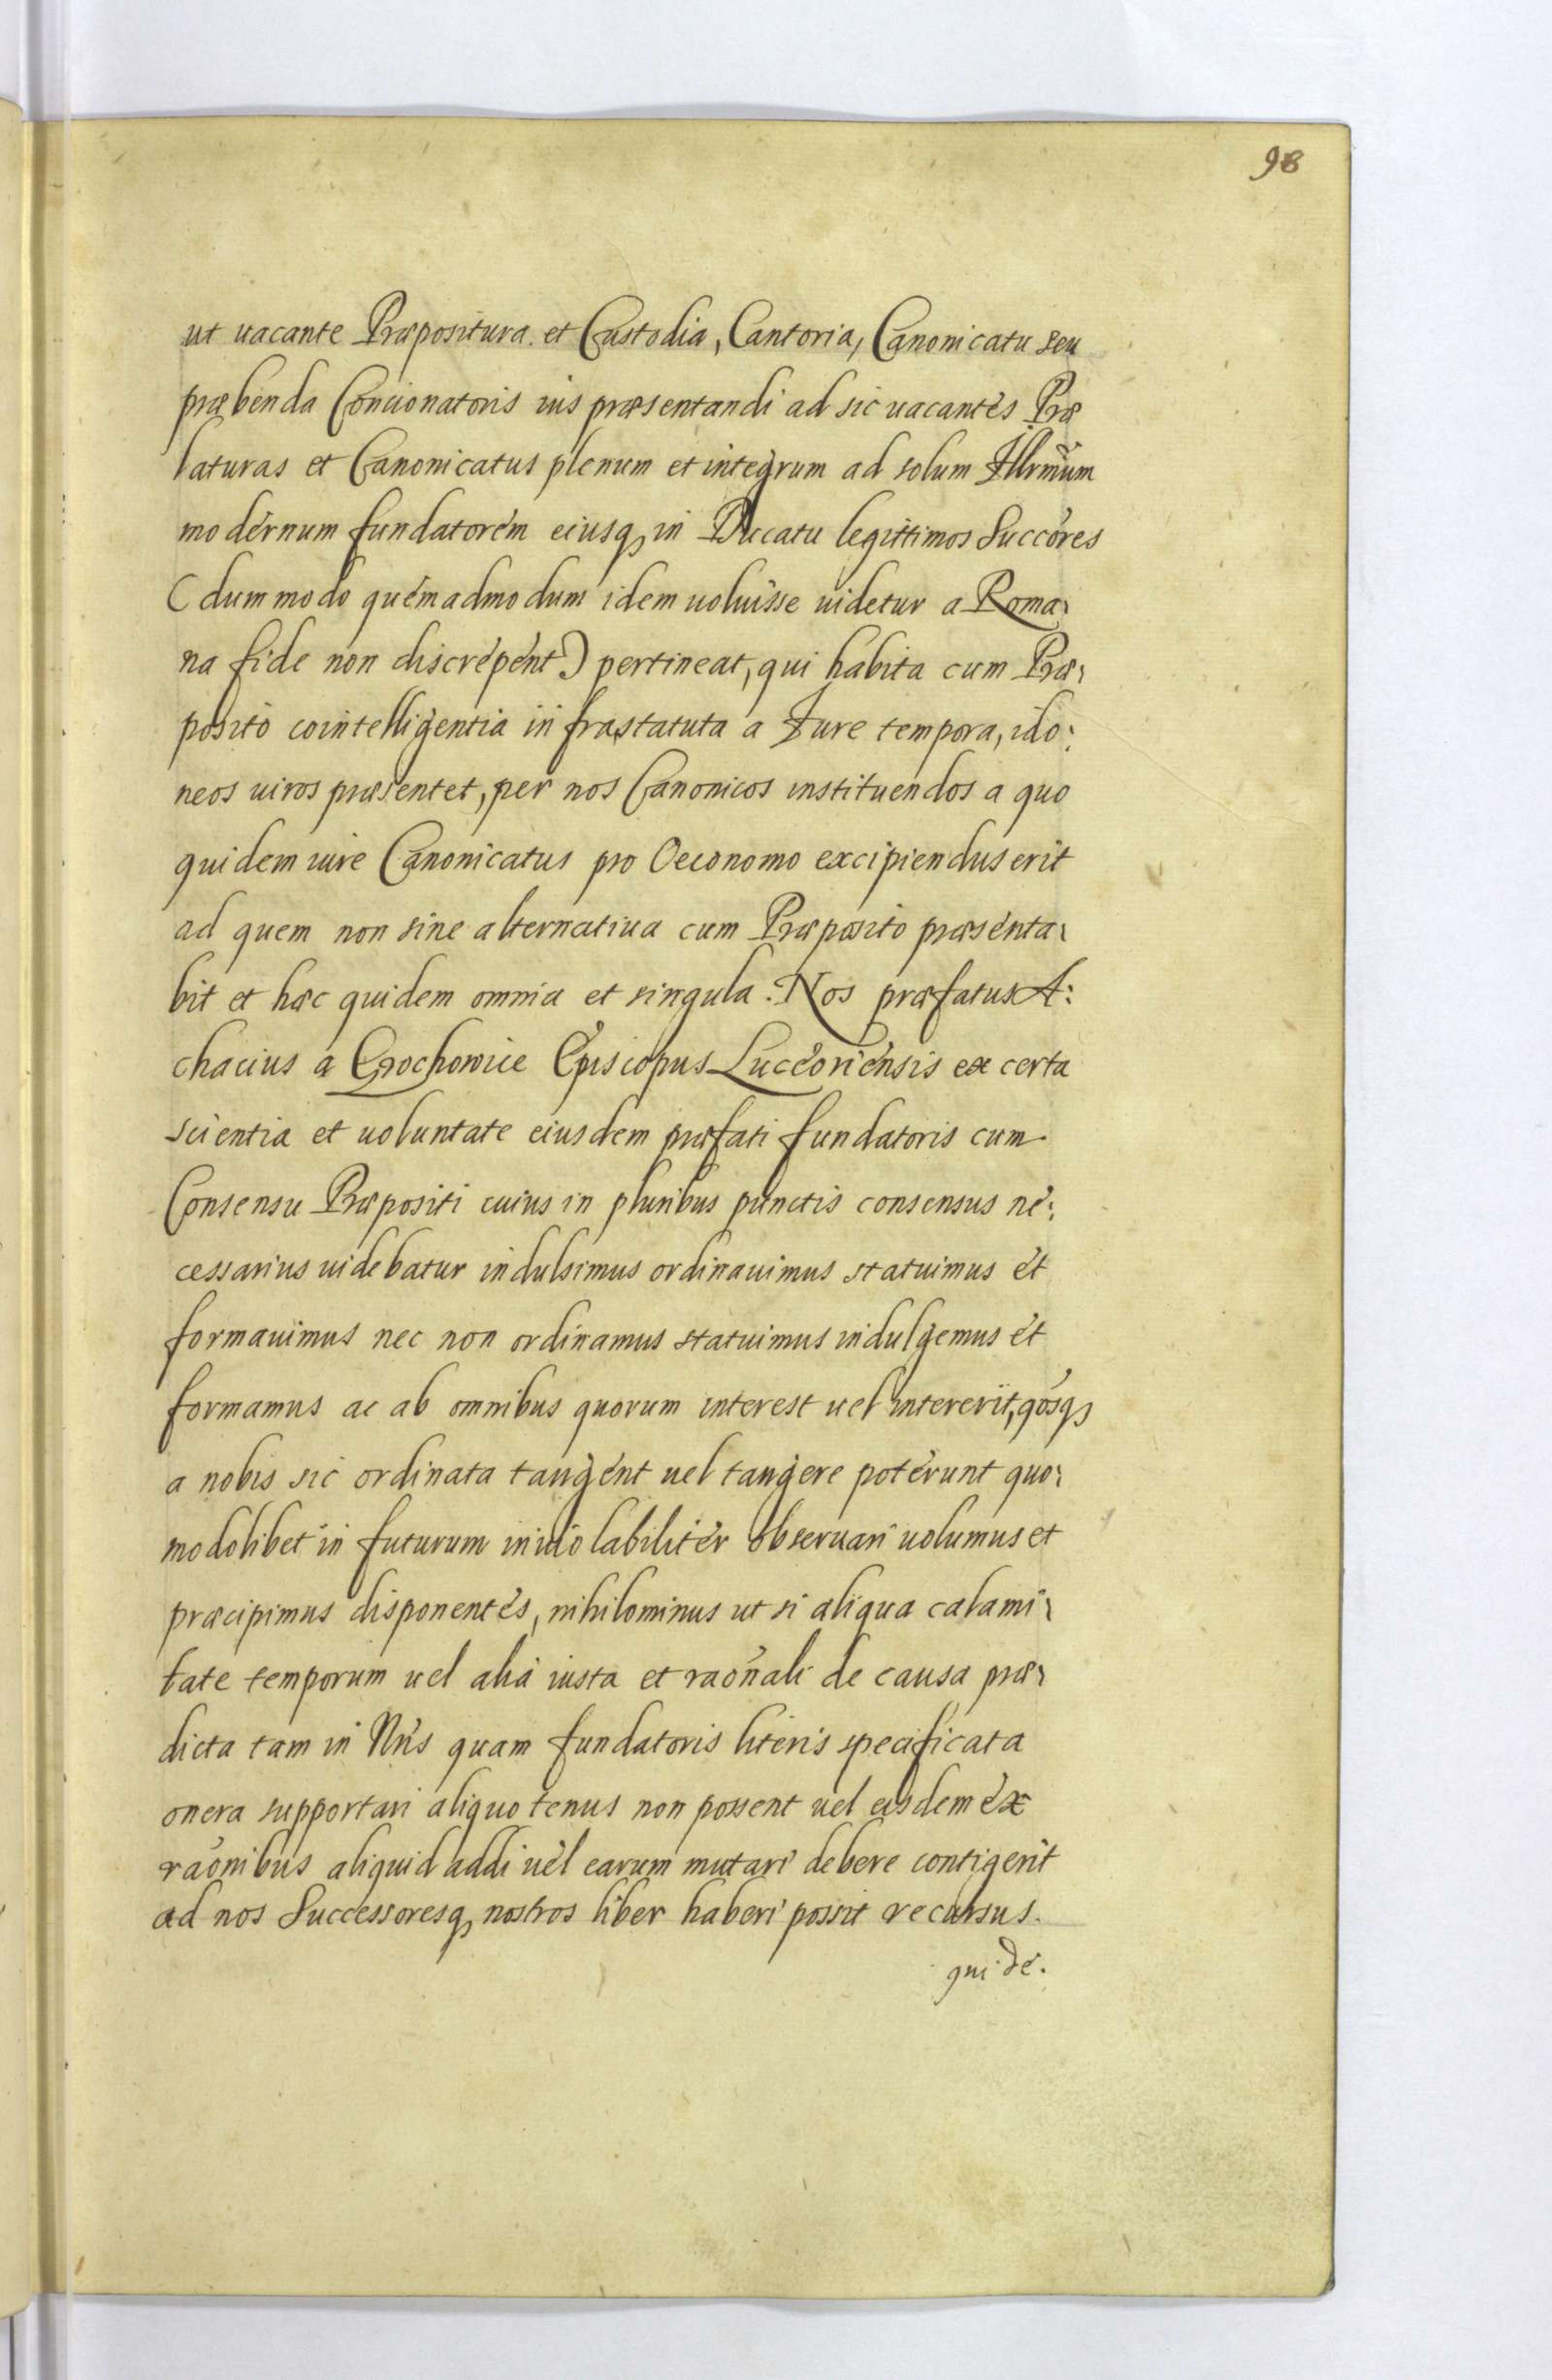 98
ut uacante Præpositura et Custodia, Cantoria, Canonicatu seu
præbenda Concionatoris ius præsentandi ad sic uacantes Præ
laturas et Canonicatus plenum et integrum ad solum Illrmum
modernum fundatorem eiusq in Ducatu legittimos Succores
(dummodo quemadmodum idem uoluisse uidetur a Roma
na fide non discrepent) pertineat, qui habita cum Præ
posito cointelligentia infra statuta a Iure tempora, ido:
neos uiros præsentet, per nos Canonicos instituendos a quo
quidem iure Canonicatus pro Oeconomo excipiendus erit
ad quem non sine alternatiua cum Præposito præsenta
bit et hæc quidem omnia et singula. Nos præfatus A:
chacius a Grochowice Episcopus Luceoriensis ex certa
scientia et uoluntate eiusdem præfati fundatoris cum
Consensu Præpositi cuius in pluribus punctis consensus ne:
cessarius uidebatur indulsimus ordinauimus statuimus et
formauimus nec non ordinamus statuimus indulgemus et
formamus ac ab omnibus quorum interest uel intererit, qosq
a nobis sic ordinata tangent uel tangere poterunt quo:
modolibet in futurum inuiolabiliter obseruari uolumus et
præcipimus disponentes, nihilominus ut si aliqua calami
tate temporum uel alia iusta et raonali de causa præ
dicta tam in Nris quam fundatoris literis specificata
onera supportari aliquotenus non possent uel eisdem ex
raonibus aliquid addi uel earum mutari debere contigerit
ad nos Successoresq nostros liber haberi possit recursus.
quide.